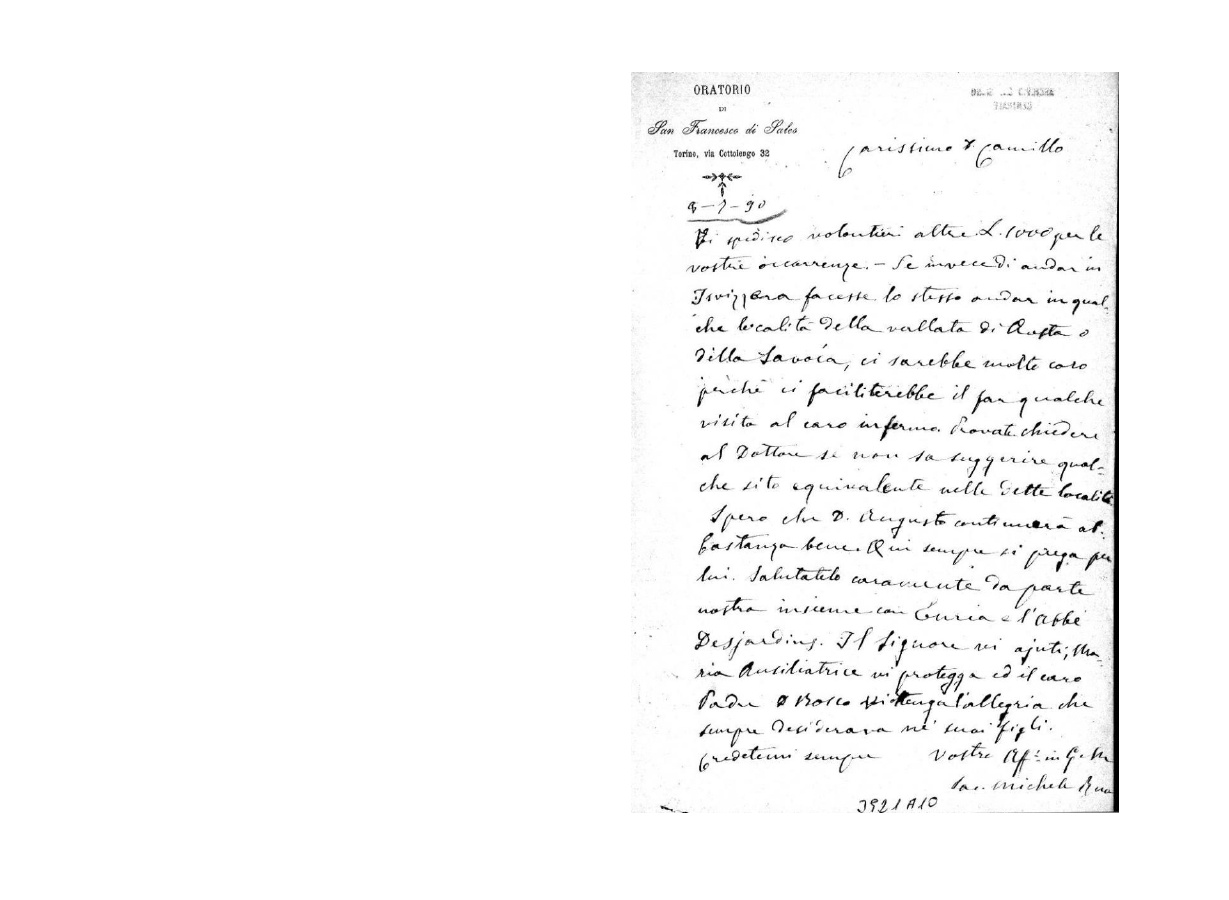 ORATORIO
DI
San Francesco di Sales
Torino, via Cottolengo 32
Carissimo D. Camillo
-7-90
Vi spedisco volontieri altre L. 1000 per le
vostre occorrenze. – Se invece di andar in
Isvizzera facesse lo stesso andar in qual-
che località della vallata di Aosta o
della Savoia, ci sarebbe molto caro
perchè ci faciliterebbe il far qualche
visita al caro infermo. Provate chiedere
al Dottore se non sa suggerire qual-
che sito equivalente nelle dette località
Spero che D. Augusto continuerà ab-
bastanza bene. Qui sempre si prega per
lui. Salutatelo caramente da parte
nostra insieme con e l'abbé
Desjardins. Il Signore vi ajuti, Ma-
ria Ausiliatrice vi protegga ed il caro
Padre D Bosco vi ottenga l'allegria che
sempre desiderava ne' suoi figli.
Credetemi sempre Vostro Aff.º in G. e M
Sac. Michele Rua
3921A10